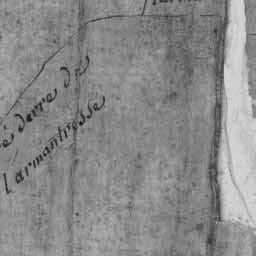 é derre de
Larmantresse